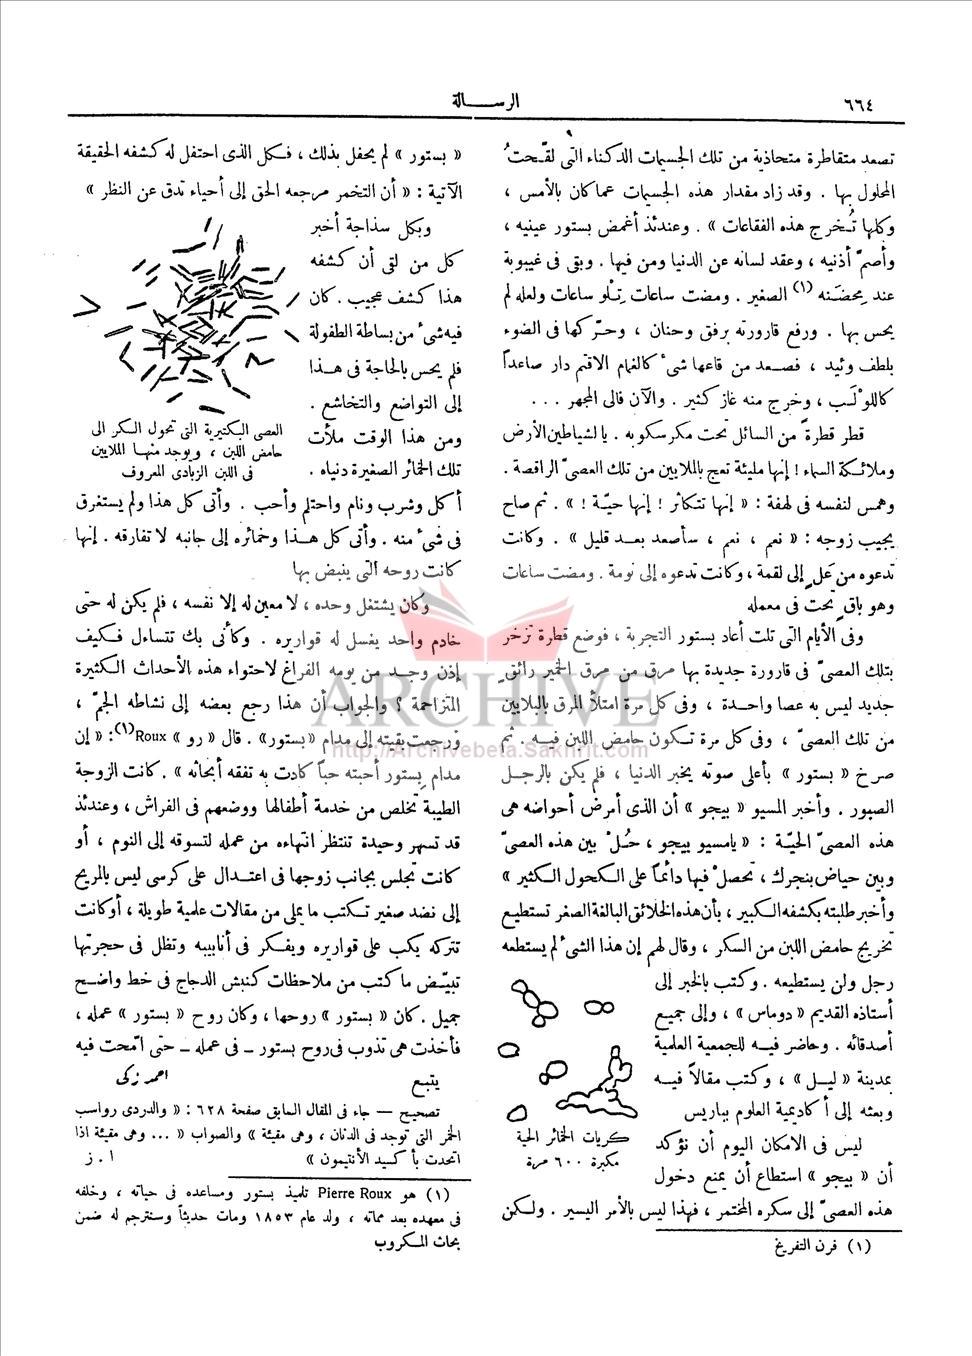 ٦٦٤
الرسالة
تصعد متقاطرة متحاذية من تلك الجسيمات الدكناء التى لقّحتُ
المحلول بها . وقد زاد مقدار هذه الجسيمات عما كان بالأمس ،
وكلها تُخرج هذه الفقاعات » . وعندئذ أغمض بستور عينيه ،
وأصمّ أذنيه ، وعقد لسانه عن الدنيا ومن فيها . وبقى فى غيبوبة
عند مِحضَنه (١) الصغير . ومضت ساعات تِلْو ساعات ولعله لم
يحس بها . ورفع قارورته برفق وحنان ، وحرّكها فى الضوء
بلطف وئيد ، فصعد من قاعها شىء كالغمام الاقتم دار صاعداً
كاللوْلَب ، وخرج منه غاز كثير . والآن فالى المجهر . . .
قطر قطرةً من السائل تحت مكرسكوبه . يا لشياطين الأرض
وملائكة السماء ! إنها مليئة تعج بالملايين من تلك العصىّ الراقصة .
وهمس لنفسه فى لهفة : « إنها تتكاثر ! إنها حيّة ! » . ثم صاح
يجيب زوجه : « نعم ، نعم ، سأصعد بعد قليل » . وكانت
تدعوه من عَلٍ إلى لقمة ، وكانت تدعوه إلى نومة . ومضت ساعات
وهو باقٍ تحتُ فى معمله
وفى الأيام التى تلت أعاد بستور التجربة ، فوضع قطرة تزخر
بتلك العصىّ فى قارورة جديدة بها مرق من مرق الخمير رائقٍ
جديد ليس به عصا واحدة ، وفى كل مرة امتلأ المرق بالبلايين
من تلك العصىّ ، وفى كل مرة تكون حامض اللبن فيه . ثم
صرخ « بستور » بأعلى صوته يخبر الدنيا ، فلم يكن بالرجل
الصبور . وأخبر المسيو « بيجو » أن الذى أمرض أحواضه هى
هذه العصىّ الحيّة : « يامسيو بيجو ، حُلْ بين هذه العصىّ
وبين حياض بنجرك ، تحصلْ فيها دائماً على الكحول الكثير »
وأخبر طلبته بكشفه الكبير ، بأن هذه الخلائق البالغة الصغر تستطيع
تخريج حامض اللبن من السكر ، وقال لهم إن هذا الشىء لم يستطعه
رجل ولن يستطيعه . وكتب بالخبر إلى
أستاذه القديم « دوماس » ، وإلى جميع
أصدقائه . وحاضر فيه للجمعية العلمية
بمدينة « ليل » ، وكتب مقالاً فيه
وبعثه إلى أكاديمية العلوم بباريس
ليس فى الامكان اليوم أن نؤكد
أن « بيجو » استطاع أن يمنع دخول
كريات الخمائر الحية
مكبرة ٦٠٠ مرة
هذه العصىّ إلى سكره المختمر ، فهذا ليس بالأمر اليسير . ولكن
(١) فرن التفريخ
« بستور » لم يحفل بذلك ، فكل الذى احتفل له كشفه الحقيقة
الآتية : « أن التخمر مرجعه الحق إلى أحياء تدق عن النظر »
وبكل سذاجة أخبر
كل من لقى أن كشفه
هذا كشف عجيب . كان
فيه شىء من بساطة الطفولة
فلم يحس بالحاجة فى هذا
إلى التواضع والتخاشع .
ومن هذا الوقت ملأت
تلك الخمائر الصغيرة دنياه .
العصى البكتيرية التى تحول السكر الى
حامض اللبن ، ويوجد منها الملايين
فى اللبن الزبادى المعروف
أكل وشرب ونام واحتلم وأحب . وأتى كل هذا ولم يستغرق
فى شىء منه . وأتى كل هذا وخمائره إلى جانبه لا تفارقه . إنها
كانت روحه التى ينبض بها
وكان يشتغل وحده ، لا معين له إلا نفسه ، فلم يكن له حتى
خادم واحد يغسل له قواريره . وكأنى بك تتساءل فكيف
إذن وجد من يومه الفراغ لاحتواء هذه الأحداث الكثيرة
المتزاحمة ؟ والجواب أن هذا رجع بعضه إلى نشاطه الجمّ ،
ورجعت بقيته إلى مدام « بستور » . قال « رو » Roux(١): « إن
مدام بستور أحبته حباً كادت به تفقه أبحاثه » . كانت الزوجة
الطيبة تخلص من خدمة أطفالها ووضعهم فى الفراش ، وعندئذ
قد تسهر وحيدة تنتظر انتهاءه من عمله لتسوقه إلى النوم ، أو
كانت تجلس بجانب زوجها فى اعتدال على كرسى ليس بالمريح
إلى نضد صغير تكتب ما يملى من مقالات علمية طويلة ، أو كانت
تتركه يكب على قواريره ويفكر فى أنابيبه وتظل فى حجرتها
تبيّض ما كتب من ملاحظات كنبش الدجاج فى خط واضح
جميل . كان « بستور » روحها ، وكان روح « بستور » عمله ،
فأخذت هى تذوب فى روح بستور ــ فى عمله ــ حتى امّحت فيه
يتبع
احمد زكى
تصحيح — جاء فى المقال السابق صفحة ٦٢٨ : « والدردى رواسب
الخمر التى توجد فى الدنان ، وهى مقيئة » والصواب « ... وهى مقيئة اذا
اتحدت بأكسيد الأنتيمون »
ا . ز
(١) هو Pierre Roux تلميذ بستور ومساعده فى حياته ، وخلفه
فى معهده بعد مماته ، ولد عام ١٨٥٣ ومات حديثاً وسنترجم له ضمن
بحاث المكروب
ARCHIVE
http://Archivebeta.Sakhrit.com